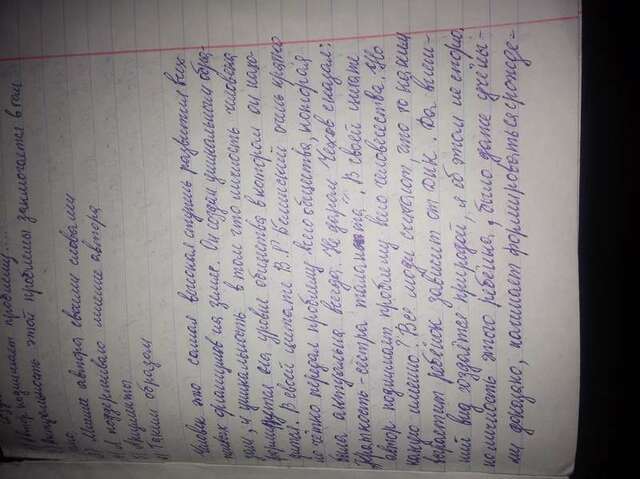 Автор поднимает проблему...
актуальность этой проблемы заключается в том
что
Мнение автора своими словами
Я поддерживаю мнение автора
Аргументы
Таким образом
Человек это самая высокая ступень развития всех
живых организмов на земле. Он создан уникальным обра-
зом, и уникальность в том что личность человека
формирует весь уровень общества в котором он нахо-
дится. В своей цитате В.Г. Белинский очень кратко
но чётко передал проблему всего общества, которая
была актуальна всегда. Не даром Чехов сказал:
Краткость - сестра таланта". В своей цитате
автор поднимает проблему всего человечества. Но
какую именно? Все люди скажут, что то каким
вырастит ребёнок зависит от ДНК. Да внеш-
ний вид создаётся природой, я об этом не спорю.
но личность этого ребёнка, было даже учёны-
ми доказано, начинает формироваться с рожде-